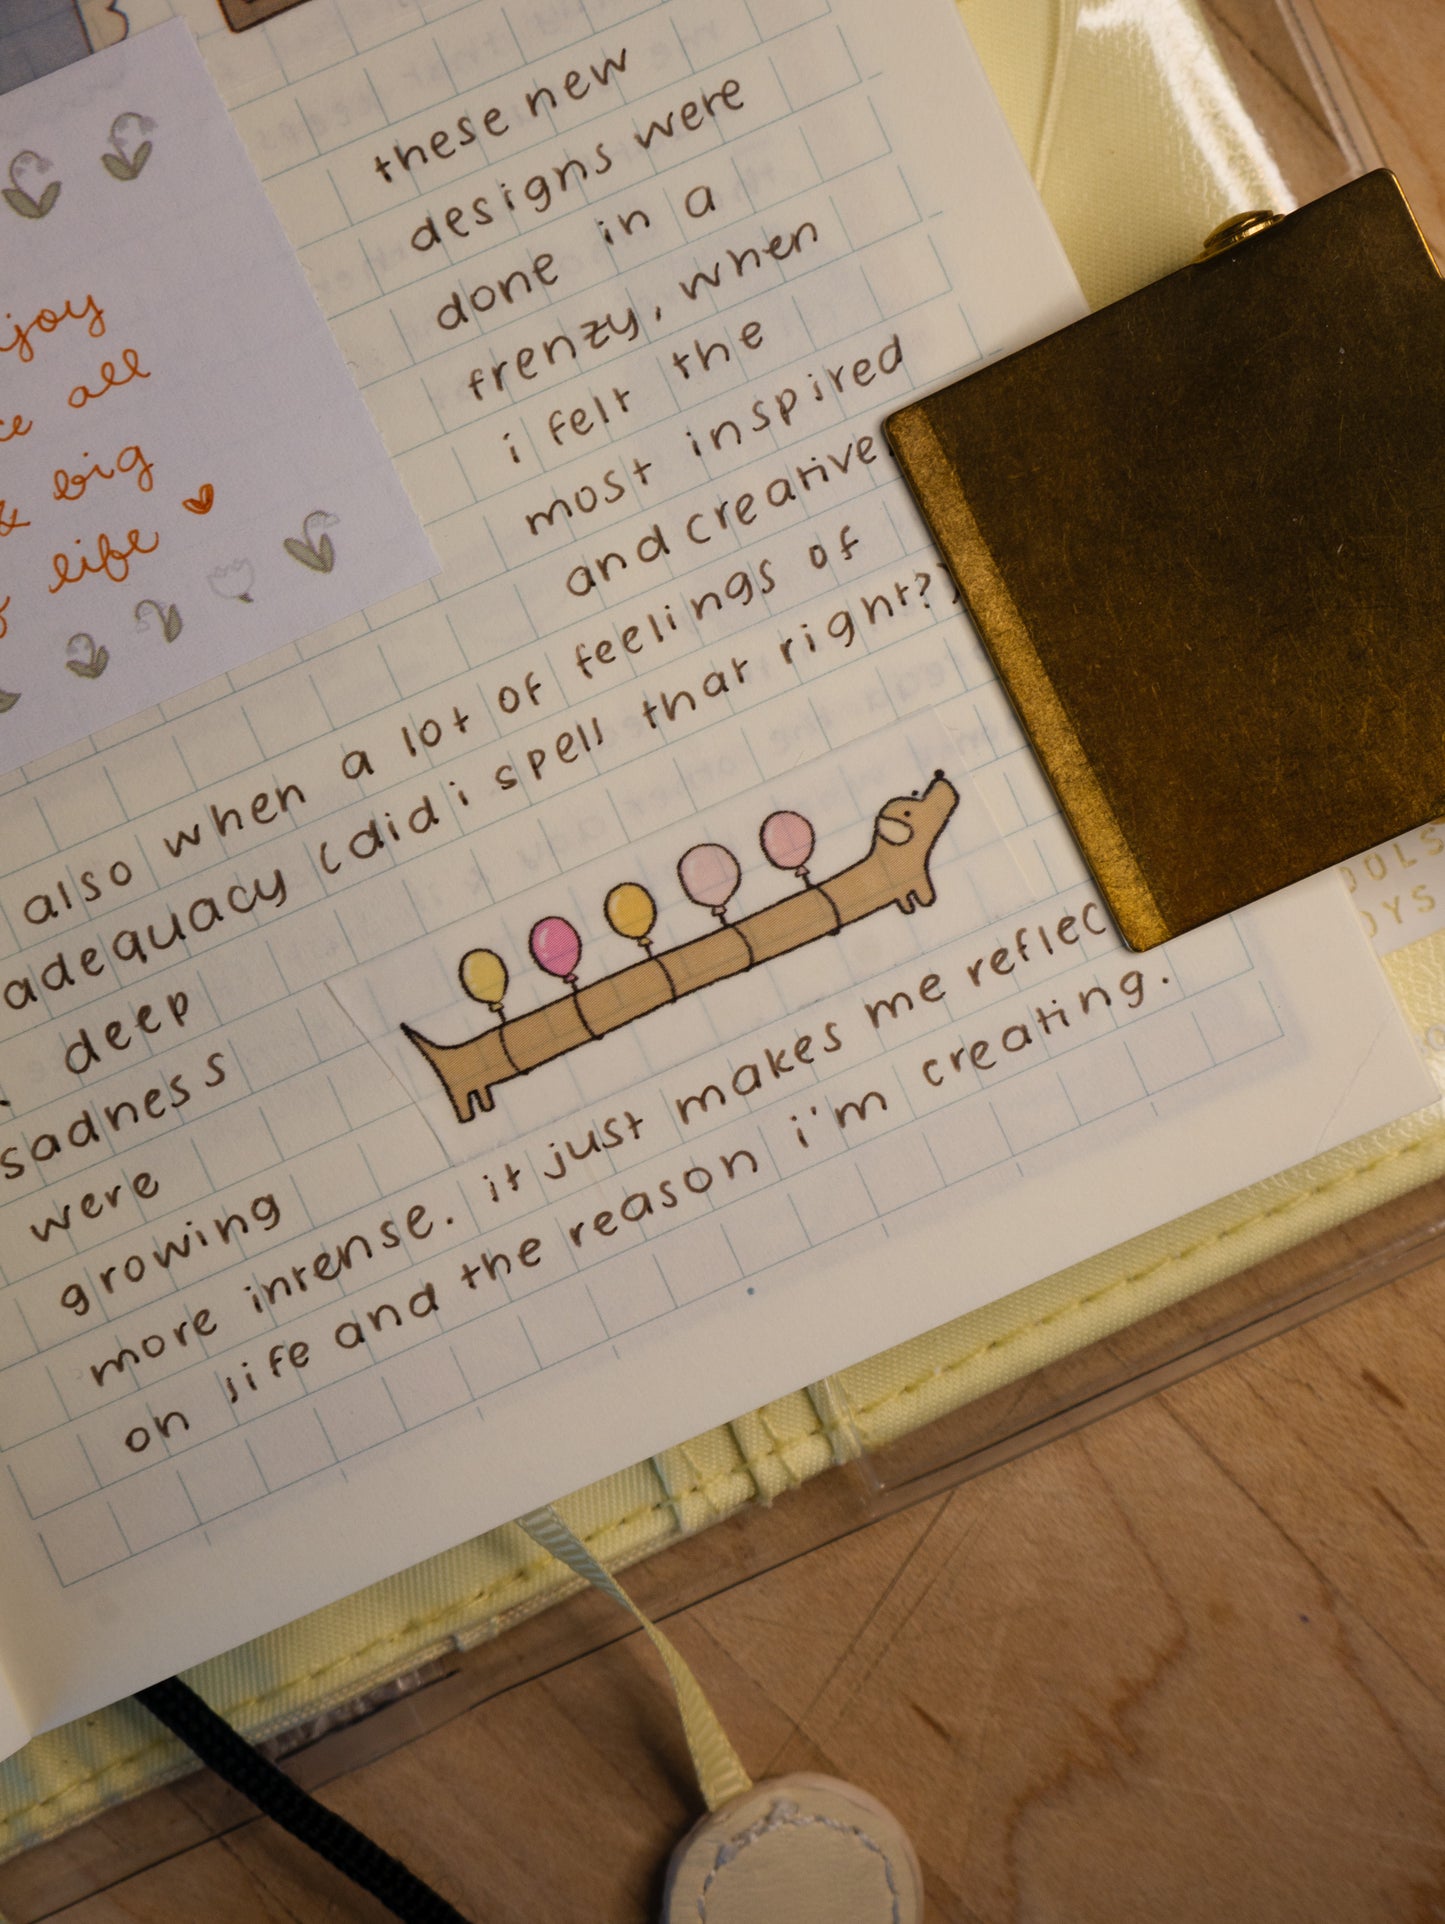 these new
designs were
done in a
frenzy, when
i felt the
most inspired
and creative.
also when a lot of feelings of
adequacy (did i spell that right?)
deep
sadness
were
growing
more intense. it just makes me reflec
on life and the reason i'm creating.
njoy
all
& big
life
OOLS
OYS